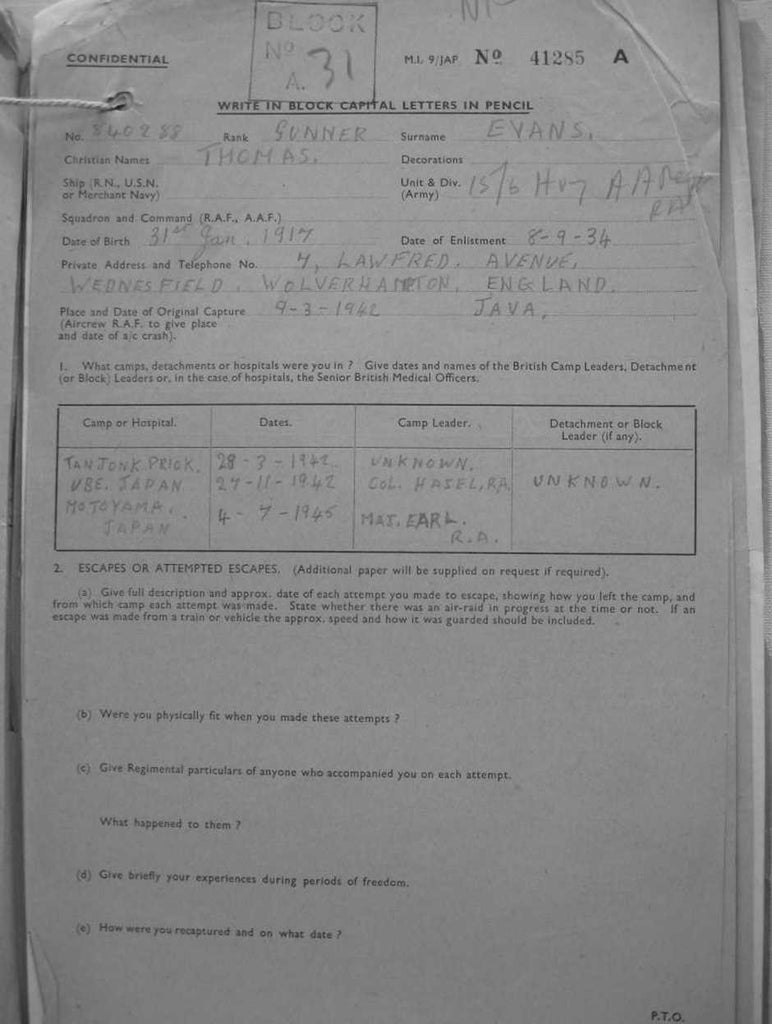 BLOCK
No
A. 31
CONFIDENTIAL
M.I. 9/JAP. No 41285 A
WRITE IN BLOCK CAPITAL LETTERS IN PENCIL
No. 840288 Rank GUNNER Surname EVANS.
Christian Names THOMAS. Decorations
Ship (R.N., U.S.N.
or Merchant Navy)
Unit & Div. 15/6 Hvy AA Regt
(Army) RA
Squadron and Command (R.A.F., A.A.F.)
Date of Birth 31st Jan. 1917 Date of Enlistment 8-9-34
Private Address and Telephone No. 4, LAWFRED. AVENUE,
WEDNESFIELD. WOLVERHAMPTON, ENGLAND.
Place and Date of Original Capture 9-3-1942 JAVA,
(Aircrew R.A.F. to give place
and date of a/c crash).
1. What camps, detachments or hospitals were you in ? Give dates and names of the British Camp Leaders, Detachment
(or Block) Leaders or, in the case of hospitals, the Senior British Medical Officers.
Camp or Hospital. Dates. Camp Leader. Detachment or Block
Leader (if any).
TANJONK PRIOK. 28-3-1942 UNKNOWN.
UBE. JAPAN 27-11-1942 COL. HASEL, RA UNKNOWN.
MOTOYAMA. 4-7-1945 MAJ. EARL.
JAPAN R.A.
2. ESCAPES OR ATTEMPTED ESCAPES. (Additional paper will be supplied on request if required).
(a) Give full description and approx. date of each attempt you made to escape, showing how you left the camp, and
from which camp each attempt was made. State whether there was an air-raid in progress at the time or not. If an
escape was made from a train or vehicle the approx. speed and how it was guarded should be included.
(b) Were you physically fit when you made these attempts ?
(c) Give Regimental particulars of anyone who accompanied you on each attempt.
What happened to them ?
(d) Give briefly your experiences during periods of freedom.
(e) How were you recaptured and on what date ?
P.T.O.